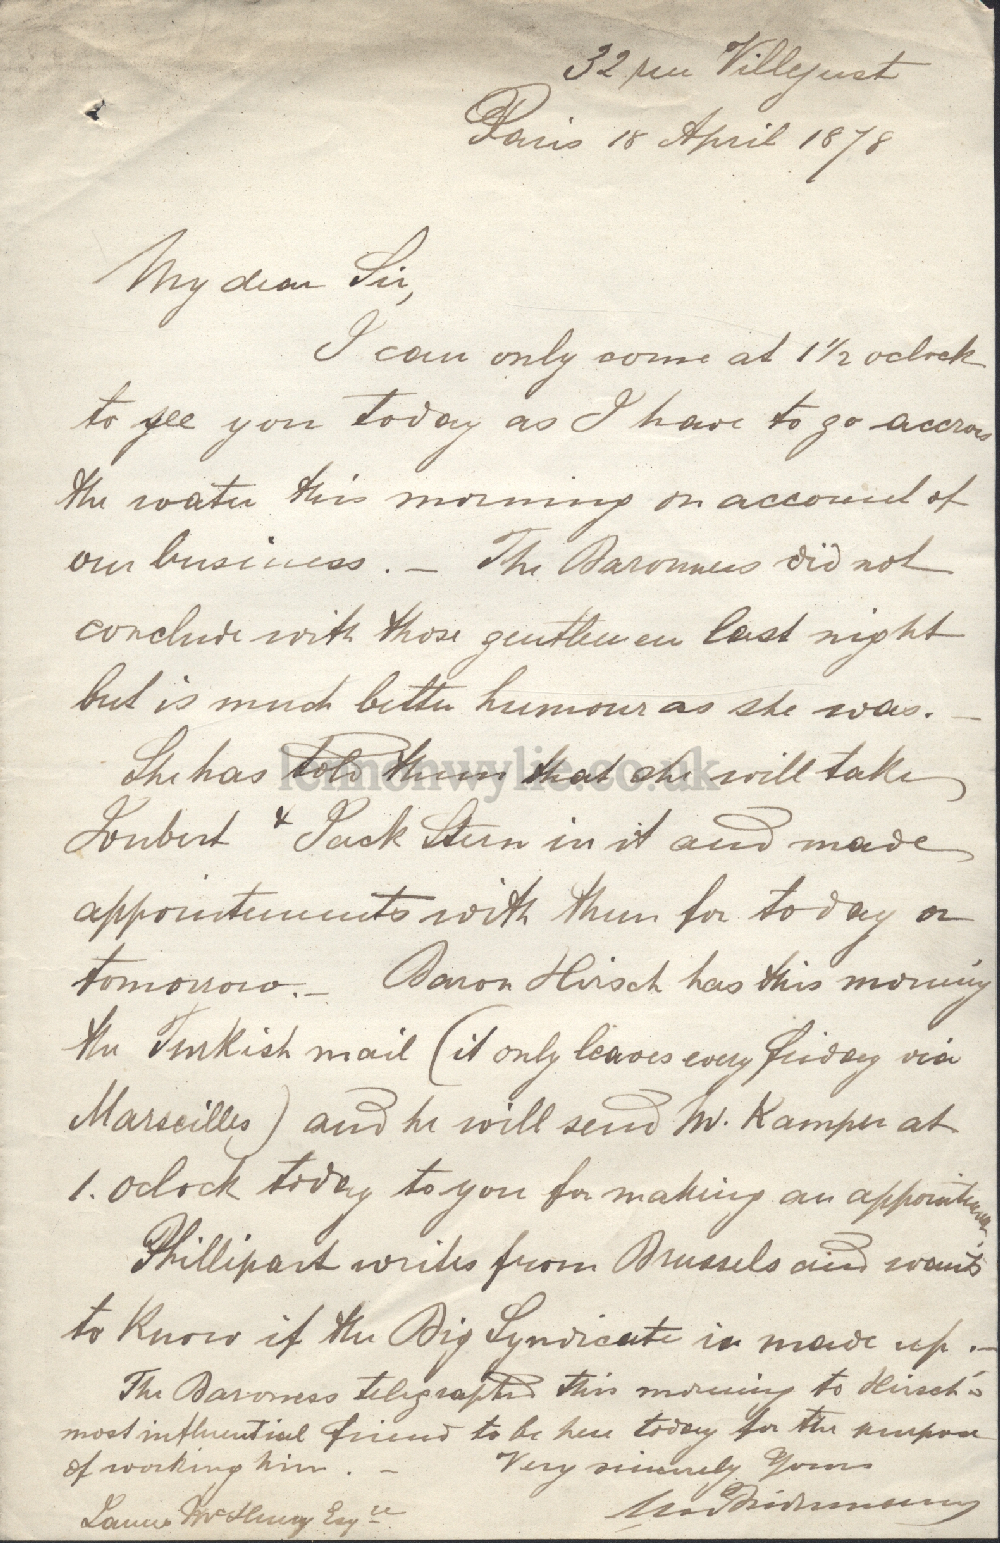 32 rue Villejust
Paris 18 April 1878
My dear Sir,
I can only come at 1 1/2 oclock
to see you today as I have to go accross
the water this morning on account of
our business. — The Baronness did not
conclude with those gentlemen last night
but is much better humour as she was. —
She has told them that she will take
Joubert & Jack Stern in it and made
appointements with them for today or
tomorrow. — Baron Hirsch has this morning
the Turkish mail (it only leaves every friday via
Marseilles) and he will send M. Kamper at
1. oclock today to you for making an appointement.
Phillipart writes from Brussels and wants
to know if the Big Syndicate is made up. —
The Baroness telegraphed this morning to Hirsch's
most influential friend to be here today for the purpose
of working him. — Very sincerely Yours
James McHenry Esqre
lennonwylie.co.uk